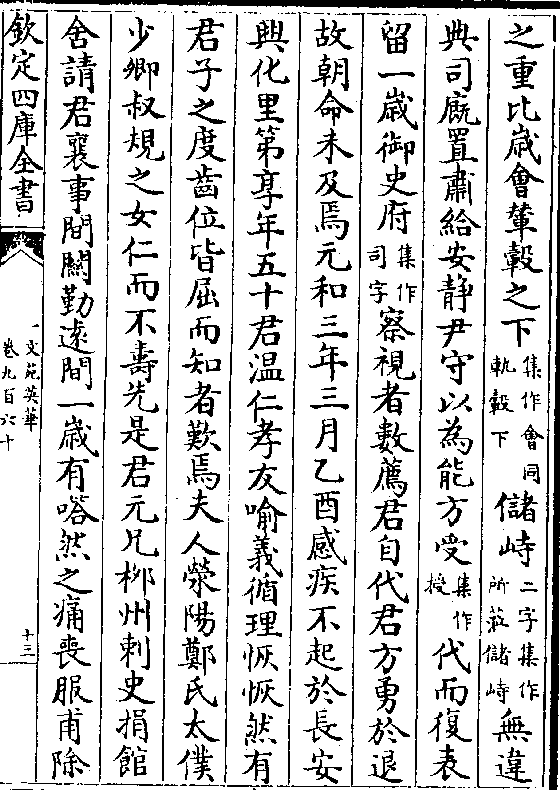 之重比歳會輦轂之下集作會同軌轂下儲峙二字集作所莅儲峙無違
典司廐置肅給安靜尹守以為能方受集作授代而復表
留一歳御史府集作司字察視者數薦君自代君方勇於退
故朝命未及焉元和三年三月乙酉感疾不起於長安
興化里第享年五十君温仁孝友喻義循理恢恢然有
君子之度齒位皆屈而知者歎焉夫人滎陽鄭氏太僕
少卿叔規之女仁而不壽先是君元兄栁州刺史捐館
舍請君襄事間關勤逺間一歳有嗒然之痛喪服甫除
欽定四庫全書
文苑英華
卷九百六十
十三